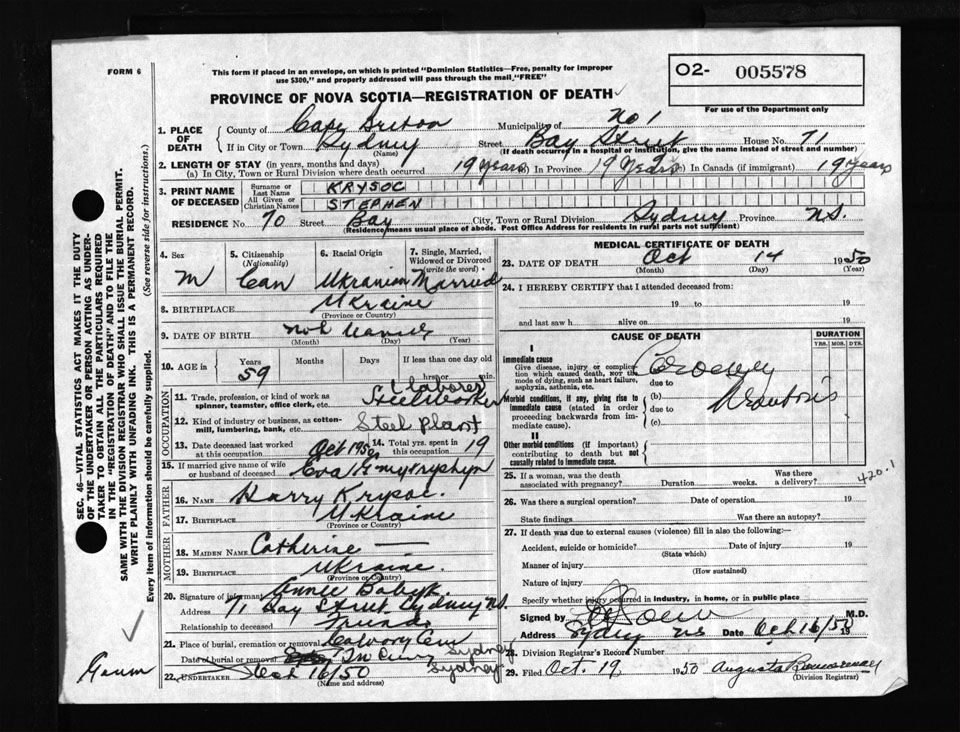 FORM 6
This form if placed in an envelope, on which is printed "Dominion Statistics—Free, penalty for improper
use $300," and properly addressed will pass through the mail, "FREE"
O2- 005578
For use of the Department only
PROVINCE OF NOVA SCOTIA—REGISTRATION OF DEATH
1. PLACE OF DEATH County of Cape Breton Municipality of No 1
If in City or Town Sydney (Name) Street Bay Street House No. 71
(If death occurred in a hospital or institution, give the name instead of street and number)
2. LENGTH OF STAY (in years, months and days)
(a) In City, Town or Rural Division where death occurred 19 Years (b) In Province 19 Years (c) In Canada (if immigrant) 19 Years
3. PRINT NAME OF DECEASED Surname or Last Name KRYSOC
All Given or Christian Names STEPHEN
RESIDENCE No. 70 Street Bay City, Town or Rural Division Sydney Province N.S.
(Residence means usual place of abode. Post Office Address for residents in rural parts not sufficient)
4. Sex M
5. Citizenship (Nationality) Can
6. Racial Origin Ukranian
7. Single, Married, Widowed or Divorced (write the word) Married
8. BIRTHPLACE Ukraine
(Province or Country)
9. DATE OF BIRTH
(Month) (Day) (Year)
10. AGE in Years 59 Months Days If less than one day old hrs. or min.
OCCUPATION
11. Trade, profession, or kind of work as spinner, teamster, office clerk, etc. Laborer Steelworker
12. Kind of industry or business, as cotton-mill, lumbering, bank, etc. Steel Plant
13. Date deceased last worked at this occupation Oct 1950 14. Total yrs. spent in this occupation 19
15. If married give name of wife or husband of deceased
FATHER
16. NAME Harry Krysoc
17. BIRTHPLACE Ukraine
(Province or Country)
MOTHER
18. MAIDEN NAME Catherine —
19. BIRTHPLACE Ukraine
(Province or Country)
20. Signature of informant Annie
Address 71 Bay Street Sydney N.S.
Relationship to deceased Friend
21. Place of burial, cremation or removal Calvory Cem Sydney
Date of burial or removal
22. UNDERTAKER Oct 16/50 Sydney
(Name and address)
MEDICAL CERTIFICATE OF DEATH
23. DATE OF DEATH Oct 14 1950
(Month) (Day) (Year)
24. I HEREBY CERTIFY that I attended deceased from:
19 to 19
and last saw h alive on 19
CAUSE OF DEATH
DURATION
YRS. MOS. DYS.
I
Immediate cause
Give disease, injury or complication which caused death, NOT the mode of dying, such as heart failure, asphyxia, asthenia, etc. (a)
due to
Morbid conditions, if any, giving rise to immediate cause (stated in order proceeding backwards from immediate cause). (b)
due to
(c)
II
Other morbid conditions (if important) contributing to death but not causally related to immediate cause.
420.1
25. If a woman, was the death associated with pregnancy? Duration weeks. Was there a delivery?
26. Was there a surgical operation? Date of operation 19
State findings Was there an autopsy?
27. If death was due to external causes (violence) fill in also the following:—
Accident, suicide or homicide? Date of injury 19
(State which)
Manner of injury
(How sustained)
Nature of injury
Specify whether injury occurred in industry, in home, or in public place
Signed by M.D.
Address Sydney NS Date Oct 16/50 19
28. Division Registrar's Record Number
29. Filed Oct. 19, 1950 Augusta
(Division Registrar)
SEC. 46—VITAL STATISTICS ACT MAKES IT THE DUTY
OF THE UNDERTAKER OR PERSON ACTING AS UNDER-
TAKER TO OBTAIN ALL THE PARTICULARS REQUIRED
IN THE "REGISTRATION OF DEATH" AND TO FILE THE
SAME WITH THE DIVISION REGISTRAR WHO SHALL ISSUE THE BURIAL PERMIT.
WRITE PLAINLY WITH UNFADING INK. THIS IS A PERMANENT RECORD.
Every item of information should be carefully supplied. (See reverse side for instructions.)